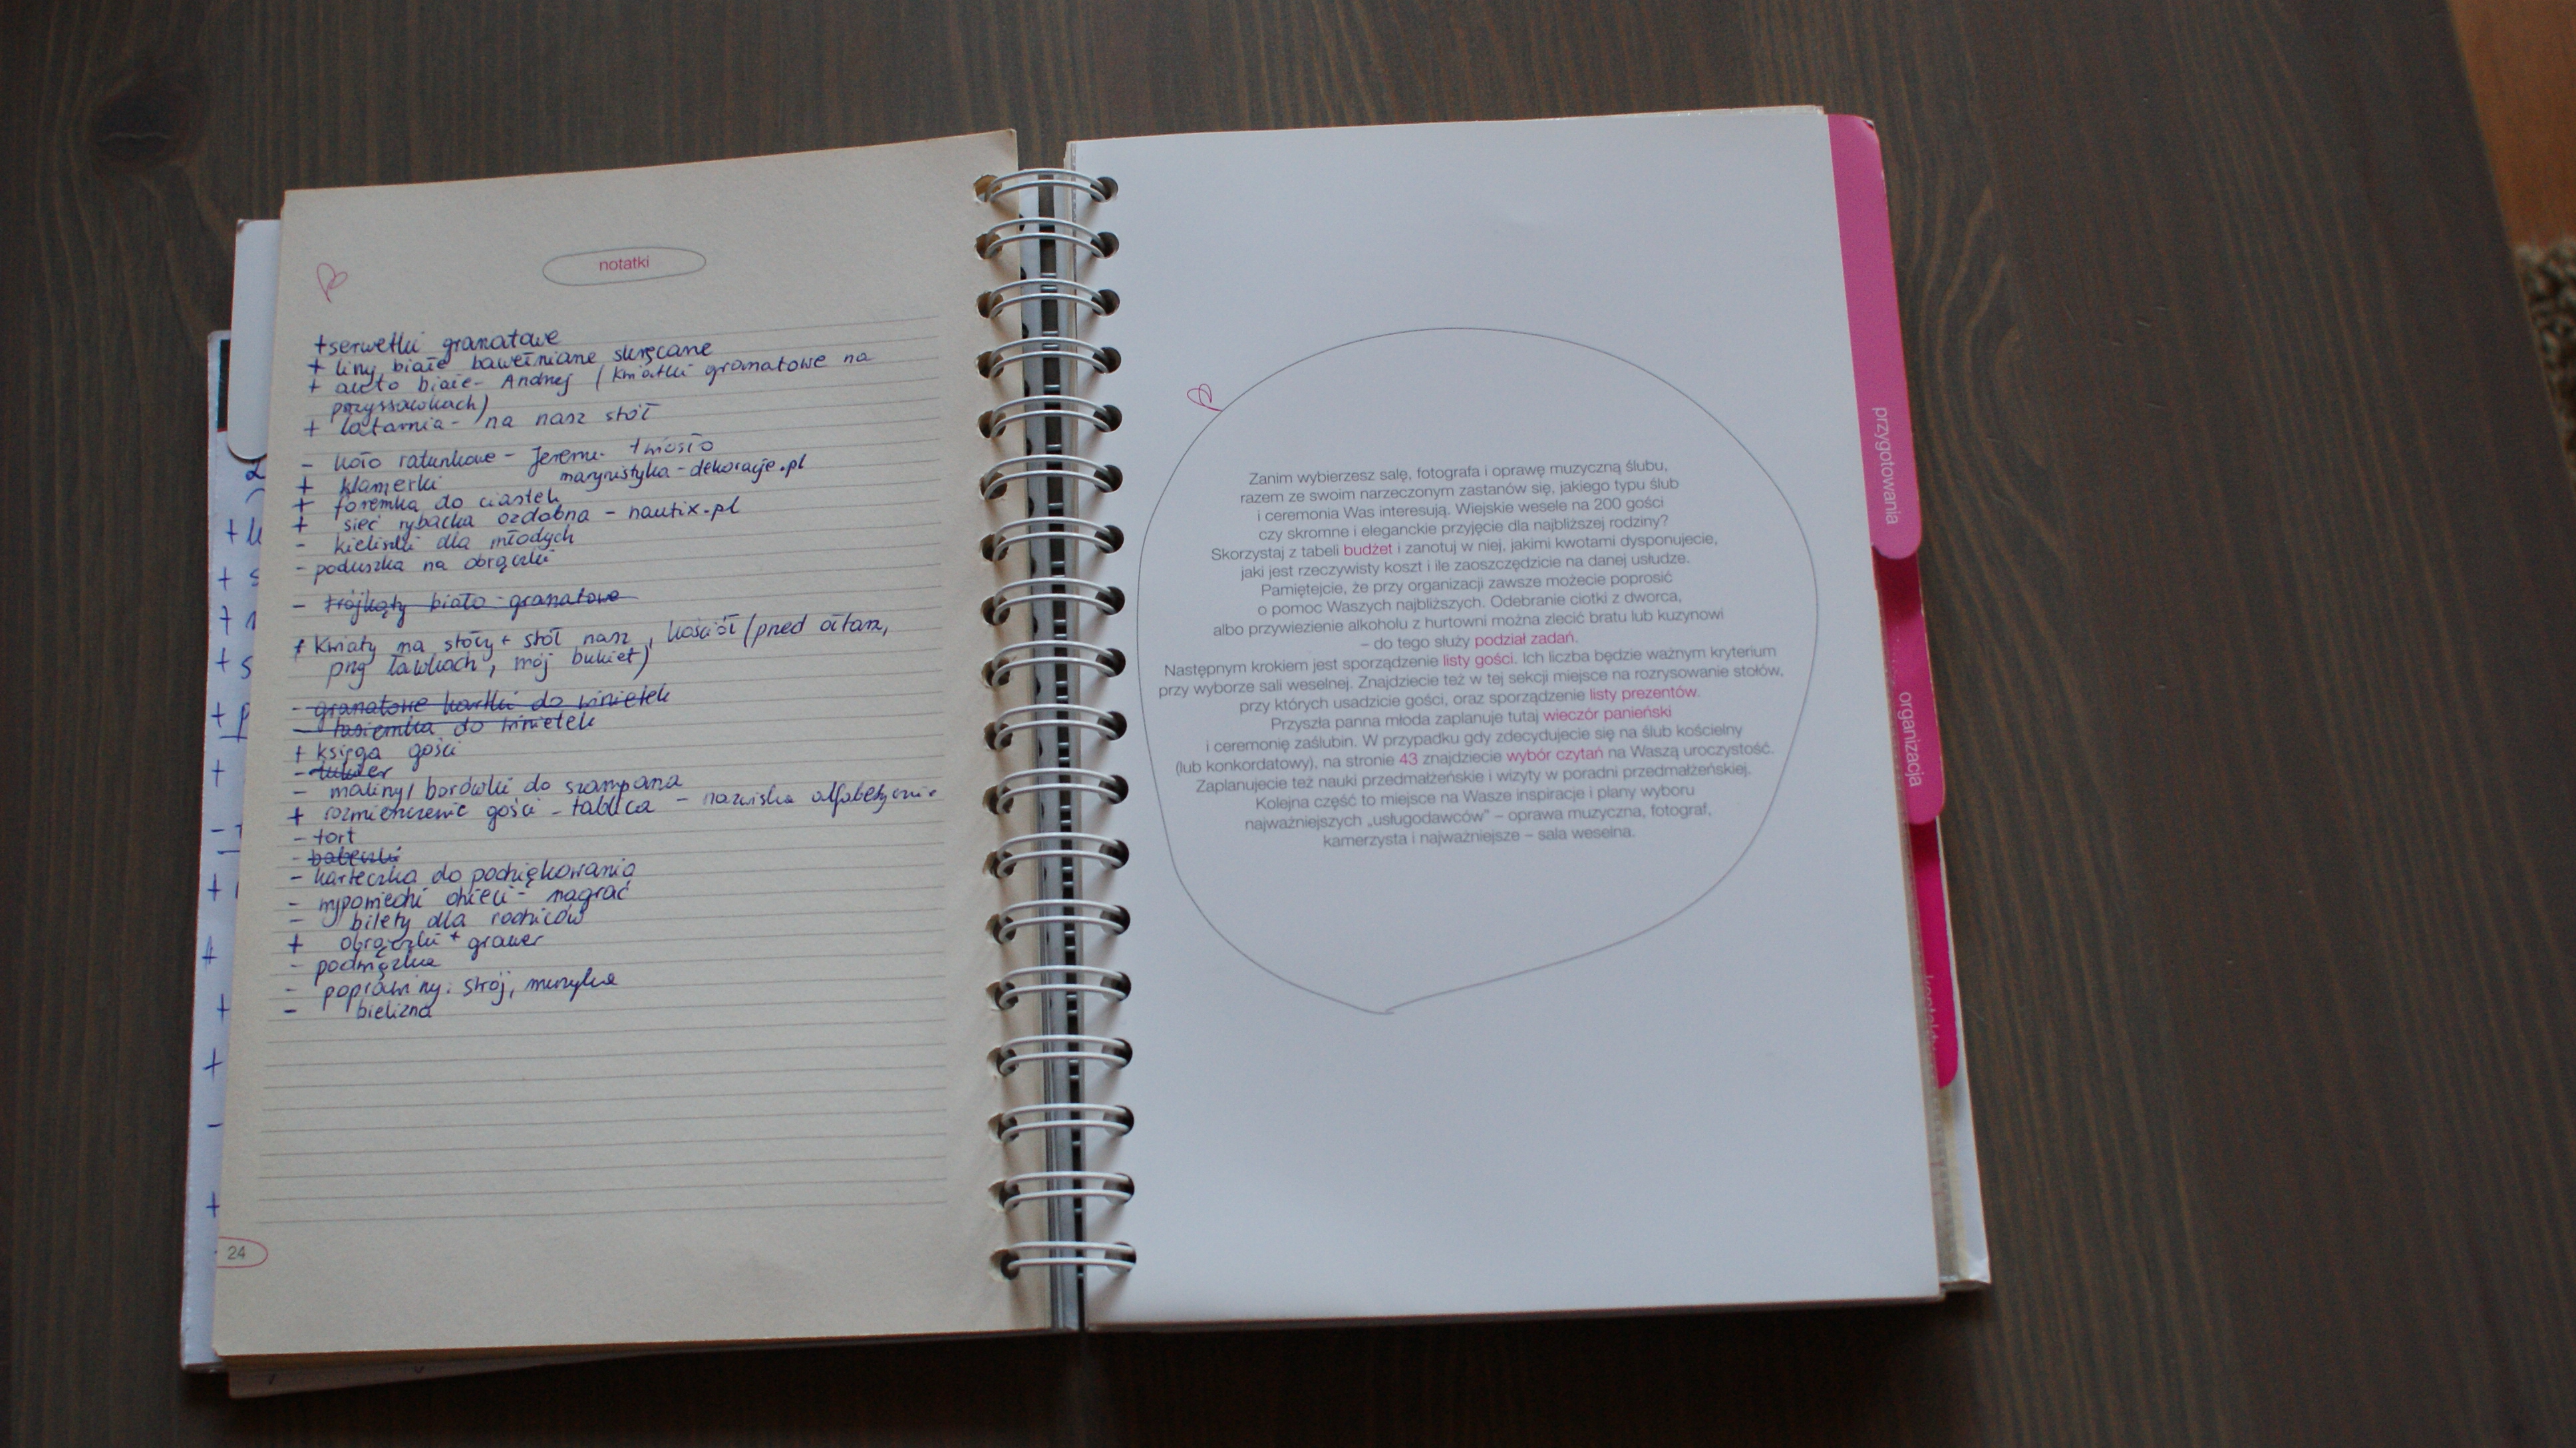 notatki
+ serwetki granatowe
+ liny białe bawełniane skręcane
+ auto białe - Andrzej (kwiatki granatowe na
przyssawkach)
+ latarnia - na nasz stół
- koło ratunkowe - Jeremi + wiosło
+ klamerki marynistyka-dekoracje.pl
+ foremka do ciastek
+ sieć rybacka ozdobna - nautix.pl
- kieliszki dla młodych
- poduszka na obrączki
- trójkąty biało-granatowe
+ kwiaty na stoły + stół nasz, kościół (przed ołtarz,
przy ławkach, mój bukiet)
- granatowe kartki do winietek
- tasiemka do winietek
+ księga gości
- maliny/borówki do szampana
+ rozmieszczenie gości - tablica - nazwiska alfabetycznie
- tort
- babeczki
- karteczka do podziękowania
- wypowiedzi dzieci - nagrać
- bilety dla rodziców
+ obrączki + grawer
- podwiązka
- poprawiny: strój, muzyka
- bielizna
24
Zanim wybierzesz salę, fotografa i oprawę muzyczną ślubu,
razem ze swoim narzeczonym zastanów się, jakiego typu ślub
i ceremonia Was interesują. Wiejskie wesele na 200 gości
czy skromne i eleganckie przyjęcie dla najbliższej rodziny?
Skorzystaj z tabeli budżet i zanotuj w niej, jakimi kwotami dysponujecie,
jaki jest rzeczywisty koszt i ile zaoszczędzicie na danej usłudze.
Pamiętejcie, że przy organizacji zawsze możecie poprosić
o pomoc Waszych najbliższych. Odebranie ciotki z dworca,
albo przywiezienie alkoholu z hurtowni można zlecić bratu lub kuzynowi
– do tego służy podział zadań.
Następnym krokiem jest sporządzenie listy gości. Ich liczba będzie ważnym kryterium
przy wyborze sali weselnej. Znajdziecie też w tej sekcji miejsce na rozrysowanie stołów,
przy których usadzicie gości, oraz sporządzenie listy prezentów.
Przyszła panna młoda zaplanuje tutaj wieczór panieński
i ceremonię zaślubin. W przypadku gdy zdecydujecie się na ślub kościelny
(lub konkordatowy), na stronie 43 znajdziecie wybór czytań na Waszą uroczystość.
Zaplanujecie też nauki przedmałżeńskie i wizyty w poradni przedmałżeńskiej.
Kolejna część to miejsce na Wasze inspiracje i plany wyboru
najważniejszych „usługodawców” – oprawa muzyczna, fotograf,
kamerzysta i najważniejsze – sala weselna.
przygotowania
organizacja